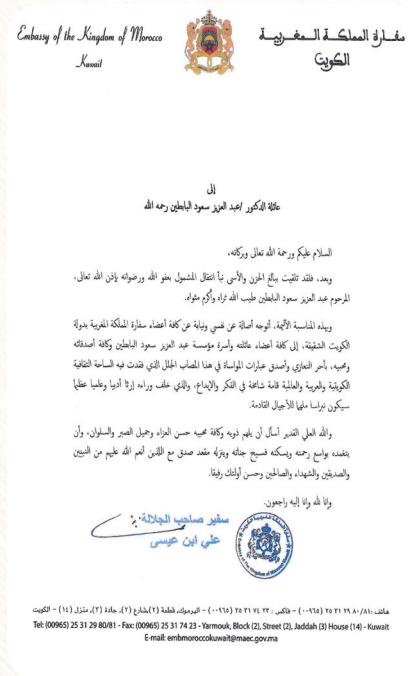 Embassy of the Kingdom of Morocco
Kuwait
سفارة المملكة المغربية
الكويت
إلى
عائلة الدكتور /عبد العزيز سعود البابطين رحمه الله
السلام عليكم ورحمة الله تعالى وبركاته،
وبعد، فلقد تلقيت ببالغ الحزن والأسى نبأ انتقال المشمول بعفو الله ورضوانه بإذن الله تعالى،
المرحوم عبد العزيز سعود البابطين طيب الله ثراه وأكرم مثواه.
وبهذه المناسبة الأليمة، أتوجه أصالة عن نفسي ونيابة عن كافة أعضاء سفارة المملكة المغربية بدولة
الكويت الشقيقة، إلى كافة أعضاء عائلته وأسرة مؤسسة عبد العزيز سعود البابطين وكافة أصدقائه
ومحبيه، بأحر التعازي وأصدق عبارات المواساة في هذا المصاب الجلل الذي فقدت فيه الساحة الثقافية
الكويتية والعربية والعالمية قامة شامخة في الفكر والإبداع، والذي خلف وراءه إرثا أدبيا وعلميا عظيما
سيكون نبراسا ملهما للأجيال القادمة.
والله العلي القدير أسأل أن يلهم ذويه وكافة محبيه حسن العزاء وجميل الصبر والسلوان، وأن
يتغمده بواسع رحمته ويسكنه فسيح جناته وينزله مقعد صدق مع اللذين أنعم الله عليهم من النبيين
والصديقين والشهداء والصالحين وحسن أولئك رفيقا.
وانا لله وانا إليه راجعون.
سفير صاحب الجلالة
علي ابن عيسى
هاتف :٨٠/٨١ ٢٩ ٣١ ٢٥ (٠٠٩٦٥) – فاكس : ٢٣ ٧٤ ٣١ ٢٥ (٠٠٩٦٥) – اليرموك، قطعة (٢)،شارع (٢)، جادة (٣)، منزل (١٤) – الكويت
Tel: (00965) 25 31 29 80/81 - Fax: (00965) 25 31 74 23 - Yarmouk, Block (2), Street (2), Jaddah (3) House (14) - Kuwait
E-mail: embmoroccokuwait@maec.gov.ma